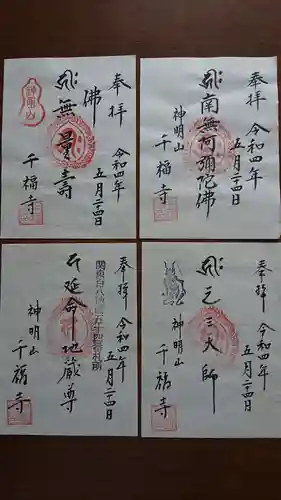 奉拝
令和四年
五月二十四日
佛
無量壽
神明山
千福寺
奉拝
令和四年
五月二十四日
南無阿彌陀佛
神明山
千福寺
奉拝
令和四年
五月二十四日
延命地蔵尊
神明山
千福寺
奉拝
令和四年
五月二十四日
元三大師
神明山
千福寺